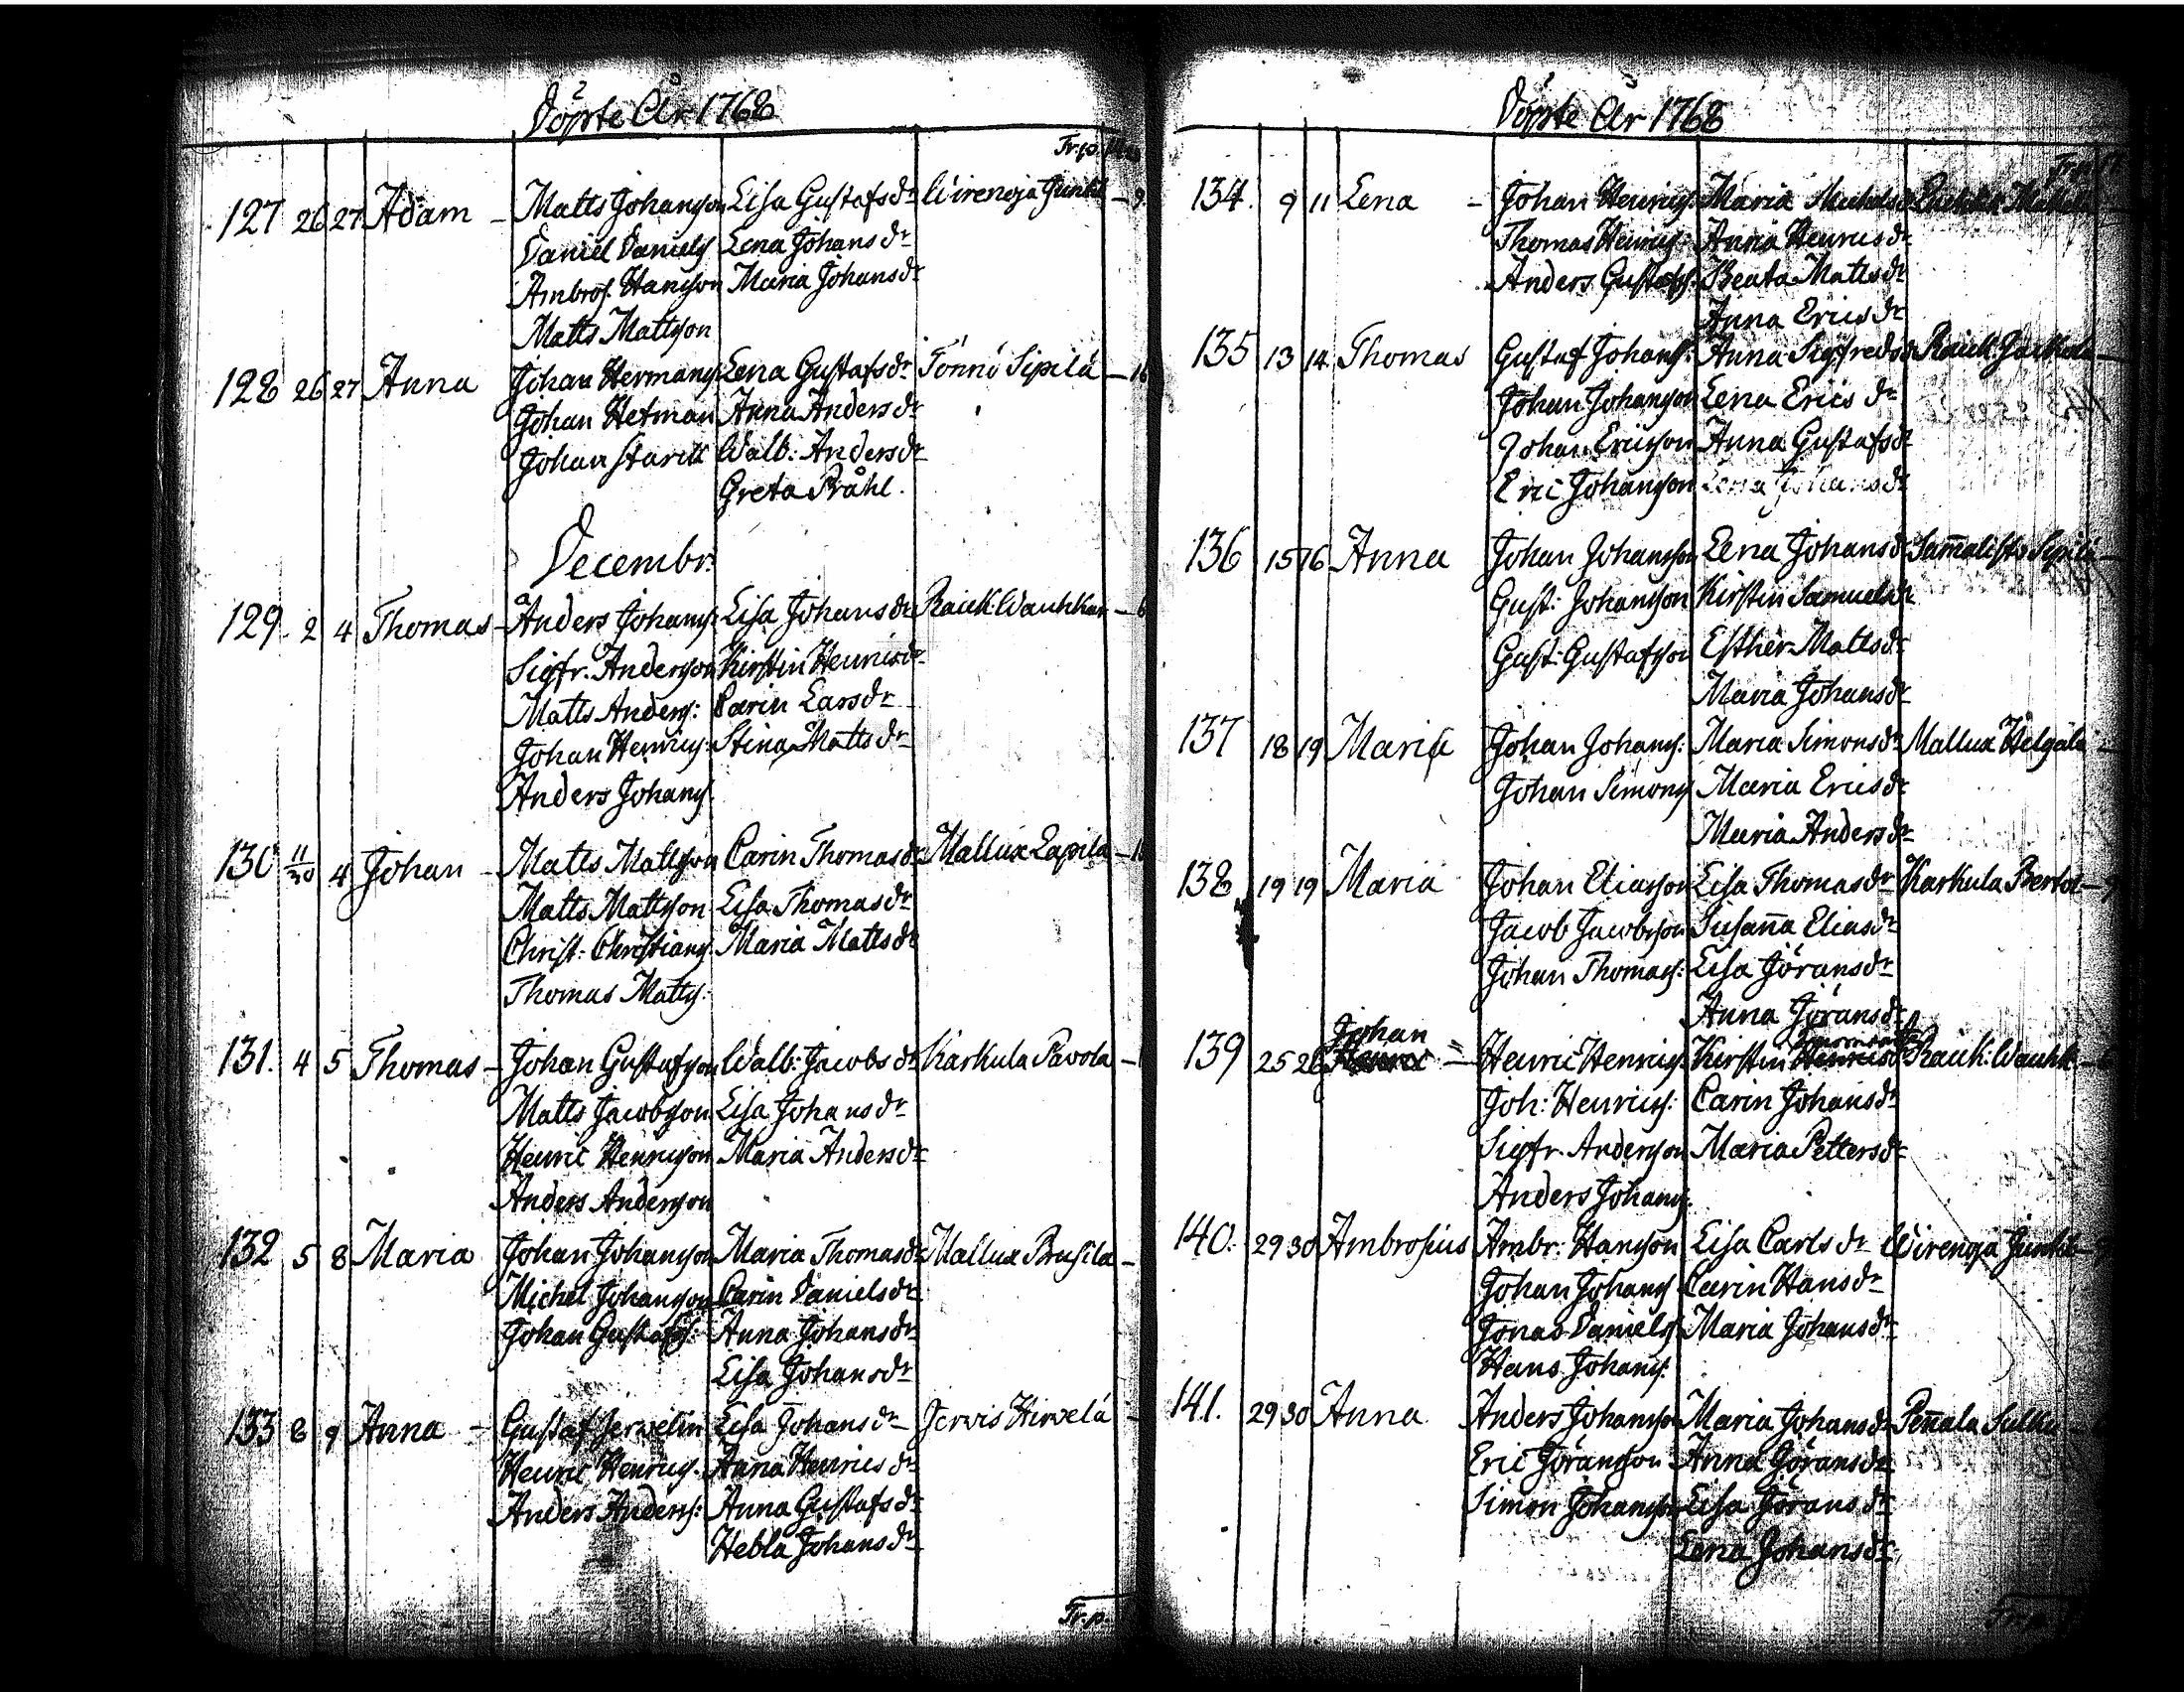 Döpte År 1768
Tr. p.
127 26 27 Adam – Matts Johansson Lisa Gustafsdr Wirenoja Juntil – 9
Daniel Daniels Lena Johansdr
Ambros. Hansson Maria Johansdr
Matts Mattsson
128 26 27 Anna Johan Hermans Lena Gustafsdr Tönnö Sipilä – 16
Johan Hetman Anna Andersdr
Johan Starck Walb: Andersdr
Greta Pråhl.
Decembr:
129. 2 4 Thomas – Anders Johans: Lisa Johansdr Rauk: Wauhkan – 6
Sigfr. Andersson Kirstin Henricsdr
Matts Anders: Carin Larsdr
Johan Henrics: Stina Mattsdr
Anders Johans.
130 11/30 4 Johan – Matts Mattsson Carin Thomasdr Mallux Lapila –
Matts Mattsson Lisa Thomasdr
Christ: Christians. Maria Mattsdr
Thomas Matts:
131. 4 5 Thomas – Johan Gustafsson Walb: Jacobsdr Karkula Pavola –
Matts Jacobsson Lisa Johansdr
Henric Henricsson Maria Andersdr
Anders Andersson
132 5 8 Maria Johan Johansson Maria Thomasdr Mallux Prusila –
Michel Johansson Carin Danielsdr
Johan Gustafs: Anna Johansdr
Lisa Johansdr
133 8 9 Anna – Gustaf Jerwelin Lisa Johansdr Jervis Hirvelä –
Henric Henrics. Anna Henricsdr
Anders Anders: Anna Gustafsdr
Hebla Johansdr
Tr. p.
Döpte År 1768
134. 9 11 Lena – Johan Henrics. Maria Michelsdr
Thomas Henrics: Anna Henricsdr
Anders Gustafs: Beata Mattsdr
Anna Ericsdr
135 13 14 Thomas Gustaf Johans: Anna Sigfredsdr Rauk: –
Johan Johansson Lena Ericsdr
Johan Ericsson Anna Gustafsdr
Eric Johansson Lena Johansdr
136 15 16 Anna Johan Johansson Lena Johansdr Samalisto Sipilä –
Gust: Johansson Kirstin Samuelsdr
Gust: Gustafsson Esther Mattsdr
Maria Johansdr
137 18 19 Maria Johan Johans: Maria Simonsdr Mallux Helgälä –
Johan Simons Maria Ericsdr
Maria Andersdr
138 19 19 Maria Johan Eliasson Lisa Thomasdr Karkula Bertol – 9
Jacob Jacobsson Susana Eliasdr
Johan Thomas: Lisa Göransdr
Anna Göransdr
Johan
139 25 26 Henric – Henric Henrics. Kirstin Henricsdr Rauk: Wauhk –
Joh: Henrics: Carin Johansdr
Sigfr. Andersson Maria Pettersdr
Anders Johans.
140. 29 30 Ambrosius Ambr: Hansson Lisa Carlsdr Wirenoja Juntil –
Johan Johans Carin Hansdr
Jonas Daniels Maria Johansdr
Hans Johans:
141. 29 30 Anna Anders Johansson Maria Johansdr Penala Sulku
Eric Göransson Anna Göransdr
Simon Johansson Lisa Göransdr
Lena Johansdr
Tr. p.